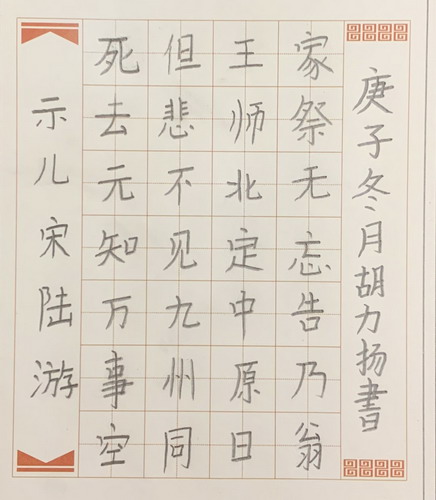 示儿 宋 陆游
死去元知万事空
但悲不见九州同
王师北定中原日
家祭无忘告乃翁
庚子冬月胡力扬書